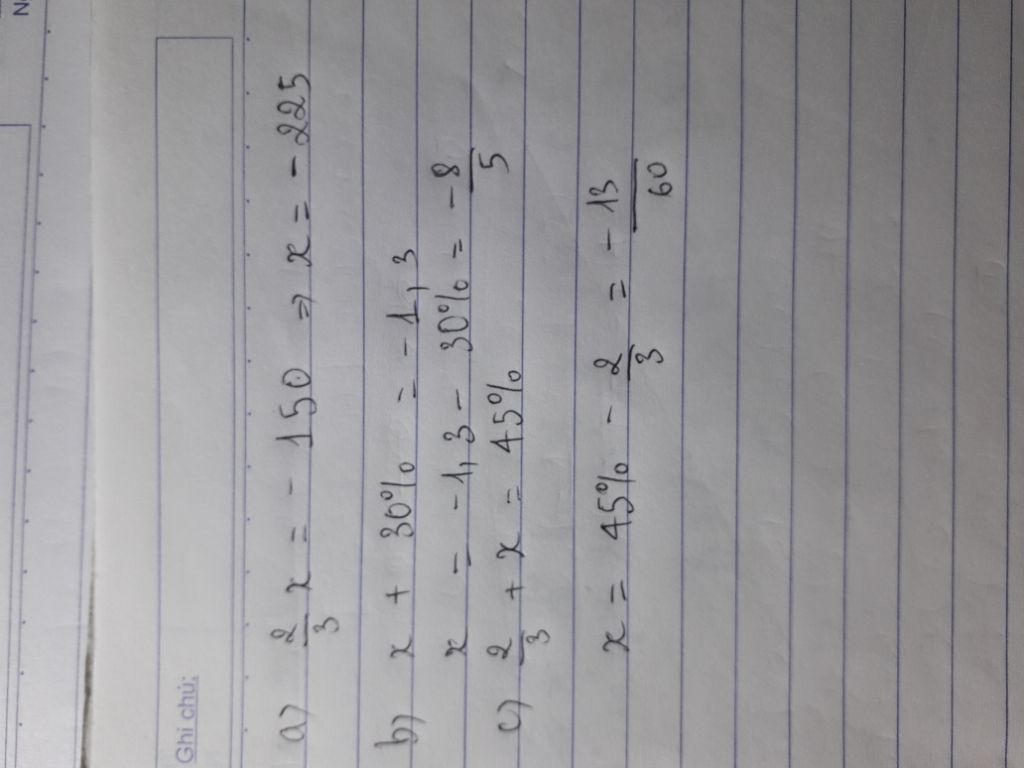 Ghi chú:
a) 2/3 x = - 150 => x = - 225
b) x + 30% = - 1,3
x = - 1,3 - 30% = - 8/5
c) 2/3 + x = 45%
x = 45% - 2/3 = - 13/60